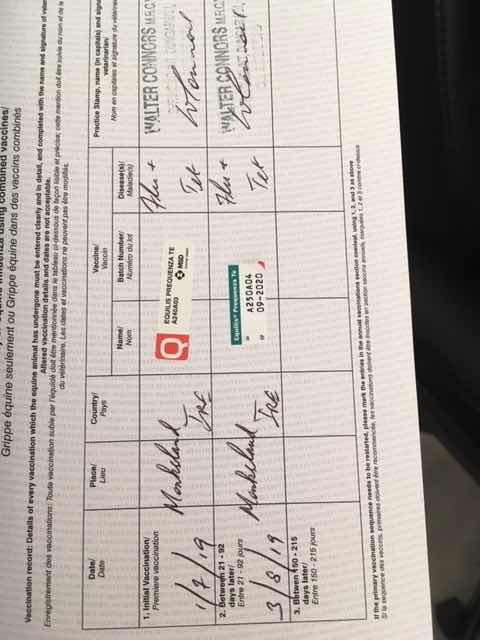 influenza using combined vaccines/
Grippe équine seulement ou Grippe équine dans des vaccins combinés
Vaccination record: Details of every vaccination which the equine animal has undergone must be entered clearly and in detail, and completed with the name and signature of
Altered vaccination details and dates are not acceptable.
Enregistrement des vaccinations: Toute vaccination subie par l'équidé doit être mentionnée dans le tableau ci-dessous de façon lisible et précise; cette mention doit être suivie du nom et de la
du vétérinaire. Les dates et vaccinations ne peuvent pas être modifiés.
Date/
Date
Place/
Lieu
Country/
Pays
Vaccine/
Vaccin
Name/
Nom
Batch Number/
Numéro du lot
Disease(s)/
Maladie(s)
Practice Stamp, name (in capitals) and signature of
veterinarian/
Nom en capitales et signature du
1. Initial Vaccination/
Première vaccination
1/7/19
Monksland
IRE
EQUILIS FREQUENZA TE
MSD
Flu +
Tet
WALTER CONNORS M.R.C.V
2. Between 21 - 92
days later/
Entre 21 - 92 jours
3/8/19
Monksland
IRE
Equilis® Frequenza Te
A250A04
09-2020
Flu +
Tet
WALTER CONNORS M.R.C.V
3. Between 150 - 215
days later/
Entre 150 - 215 jours
If the primary vaccination sequence needs to be restarted, please mark the entries in the annual vaccinations section overleaf, using 1, 2, and 3 as above